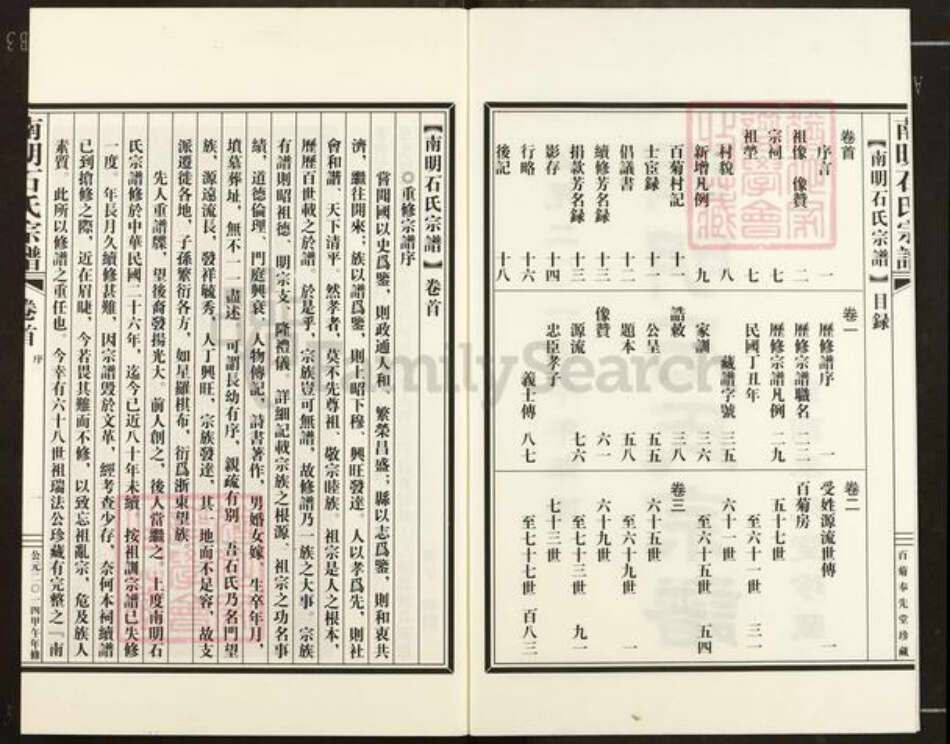 南明石氏宗譜
【南明石氏宗譜】目録
卷首
序言 一
祖像 像贊 二
宗祠 七
祖塋 七
村貌 八
新增凡例 九
百菊村記 十一
士宦録 十二
倡議書 十二
續修芳名録 十三
捐款芳名録 十三
影存 十四
行略 十六
後記 十八
卷一
歷修譜序 一
歷修宗譜職名 二二
歷修宗譜凡例 二九
民國丁丑年
藏譜字號 三五
家訓 三六
誥敕 三八
公呈 五五
題本 五八
像贊 六一
源流 七六
忠臣孝子
義士傳 八七
卷二
受姓源流世傳 一
百菊房
五十七世
至六十一世 三二
六十一世
至六十五世 五四
卷三
六十五世
至六十九世 一
六十九世
至七十三世 九一
七十三世
至七十七世 百八二
百菊奉先堂珍藏
【南明石氏宗譜】卷首
○重修宗譜序
嘗聞國以史爲鑒，則政通人和、繁榮昌盛；縣以志爲鑒，則和衷共
濟、繼往開來；族以譜爲鑒，則上昭下穆、興旺發達。人以孝爲先，則社
會和諧、天下清平。然孝者，莫不先尊祖、敬宗睦族。祖宗是人之根本，
歷歷百世載之於譜。於是乎，宗族豈可無譜，故修譜乃一族之大事。宗族
有譜則昭祖德、明宗支、隆禮儀。詳細記載宗族之根源、祖宗之功名事
績、道德倫理、門庭興衰、人物傳記、詩書著作，男婚女嫁、生卒年月，
墳墓葬址，無不一一盡述，可謂長幼有序，親疏有别。吾石氏乃名門望
族，源遠流長，發祥毓秀，人丁興旺，宗族發達，其地而不足容，故支
派遷徙各地，子孫繁衍各方，如星羅棋布，衍爲浙東望族。
先人重譜牒，望後裔發揚光大。前人創之，後人當繼之，上度南明石
氏宗譜修於中華民國二十六年，迄今已近八十年未續。按祖訓宗譜已失修
一度。年長月久續修甚難，因宗譜毀於文革，經考查少存，奈何本祠續譜
已到搶修之際，近在眉睫，今若畏其難而不修，以致忘祖亂宗，危及族人
素質。此所以修譜之重任也。今幸有六十八世祖瑞法公珍藏有完整之『南
南明石氏宗譜
卷首
序
一
公元二〇一四甲午年修
FamilySearch